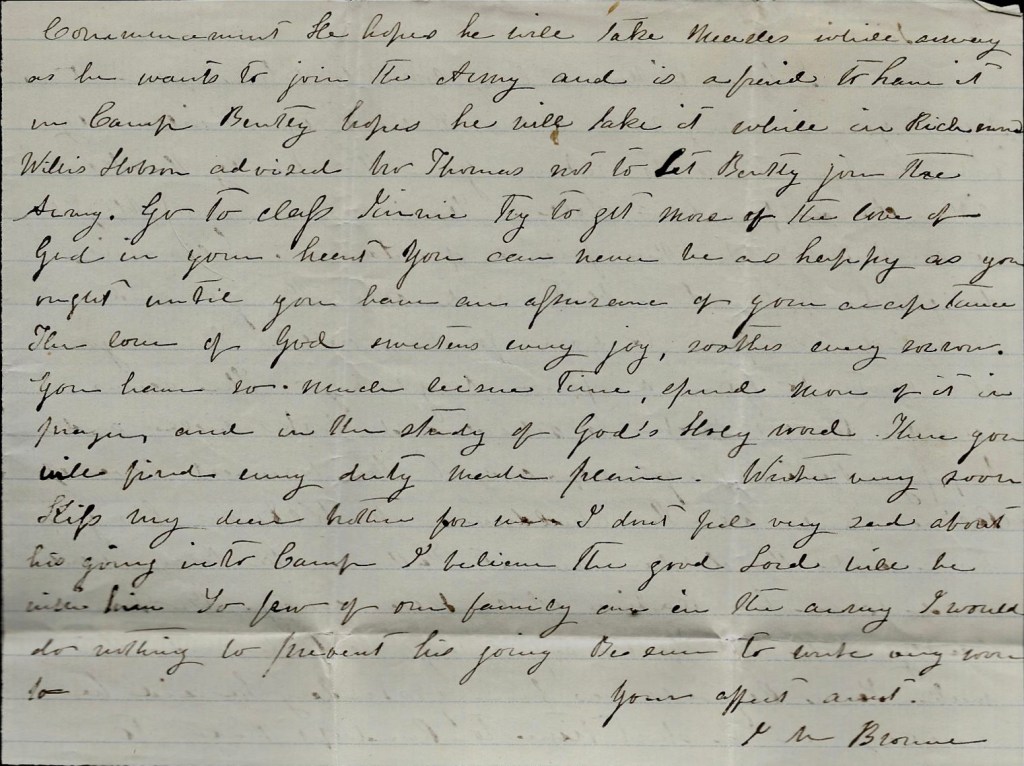 Commencement He hopes he will take Measles while away
as he wants to join the Army and is afraid to have it
in Camp Bentley hopes he will take it while in Richmond
Willis Hobson advised Mr Thomas not to let Bently join the
Army. Go to class Jinnie Try to get more of the love of
God in your heart You can never be as happy as you
ought until you have an assurance of your acceptance
The love of God sweetens every joy, soothes every sorrow.
You have so much leisure time, spend more of it in
prayer, and in the study of God's Holy word There you
will find every duty made plain. Write very soon
Kiss my dear brother for me I dont feel very sad about
his going into Camp I believe the good Lord will be
with him So few of our family are in the army I would
do nothing to prevent his going Be sure to write very soon
to
Your affect aunt.
M Browne